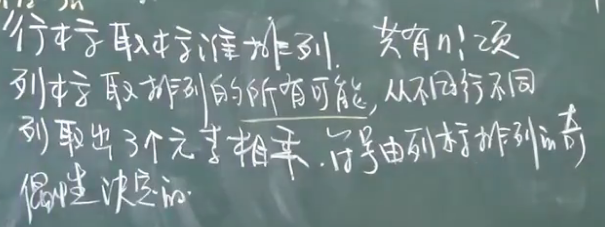 行标取标准排列. 共有n!项
列标取排列的所有可能, 从不同行不同
列取出3个元素相乘. 符号由列标排列的奇
偶性决定的.